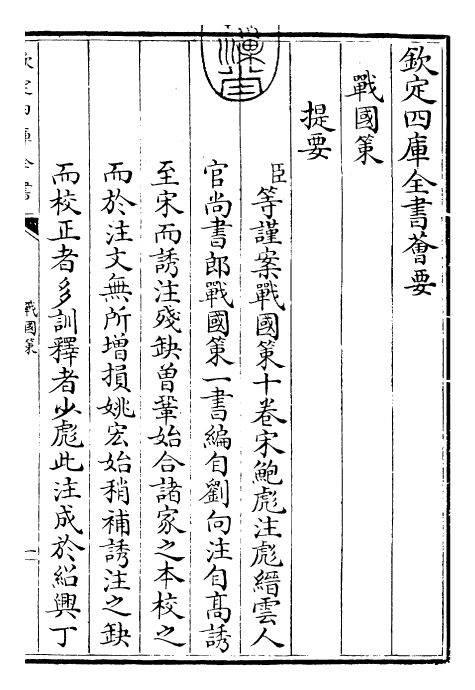 欽定四庫全書薈要
戰國策
提要
臣等謹案戰國策十卷宋鮑彪注彪縉雲人
官尚書郎戰國策一書編自劉向注自高誘
至宋而誘注殘缺曽鞏始合諸家之本校之
而於注文無所增損姚宏始稍補誘注之缺
而校正者多訓釋者少彪此注成於紹興丁
欽定四庫全書
戰國策
一